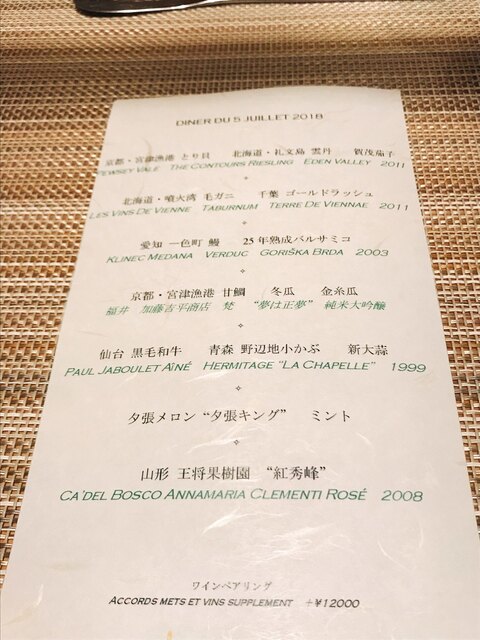 DINER DU 5 JUILLET 2018
京都・宮津漁港 とり貝 北海道・礼文島 雲丹 賀茂茄子
PEWSEY VALE THE CONTOURS RIESLING EDEN VALLEY 2011
北海道・噴火湾 毛ガニ 千葉 ゴールドラッシュ
LES VINS DE VIENNE TABURNUM TERRE DE VIENNAE 2011
愛知 一色町 鰻 25年熟成バルサミコ
KLINEC MEDANA VERDUC GORIŠKA BRDA 2003
京都・宮津漁港 甘鯛 冬瓜 金糸瓜
福井 加藤吉平商店 梵 “夢は正夢” 純米大吟醸
仙台 黒毛和牛 青森 野辺地小かぶ 新大蒜
PAUL JABOULET AÎNÉ HERMITAGE "LA CHAPELLE" 1999
夕張メロン “夕張キング” ミント
山形 王将果樹園 “紅秀峰”
CA'DEL BOSCO ANNAMARIA CLEMENTI ROSÉ 2008
ワインペアリング
ACCORDS METS ET VINS SUPPLEMENT +¥12000